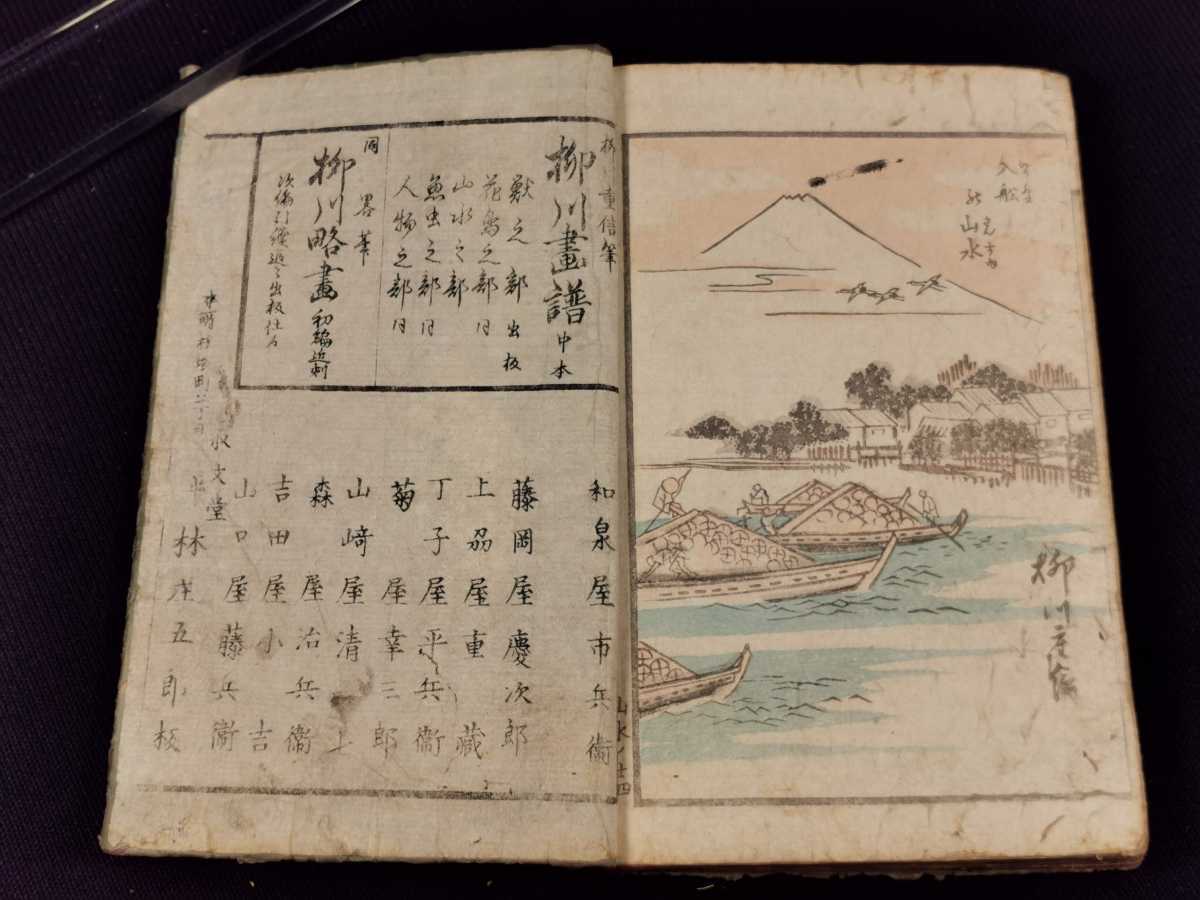 入船
山水
柳川重信
山水ノ十四
柳川重信筆
柳川畫譜 中本
獣之部 出板
花鳥之部 同
山水之部
魚虫之部 同
人物之部 同
同 畧筆
柳川略畫 初編近刻
次編引續追々出板仕候
和泉屋市兵衞
藤岡屋慶次郎
上州屋重藏
丁子屋平兵衞
菊屋幸三郎
山﨑屋清七
森屋治兵衞
吉田屋小吉
山口屋藤兵衞
永文堂
林庄五郎板